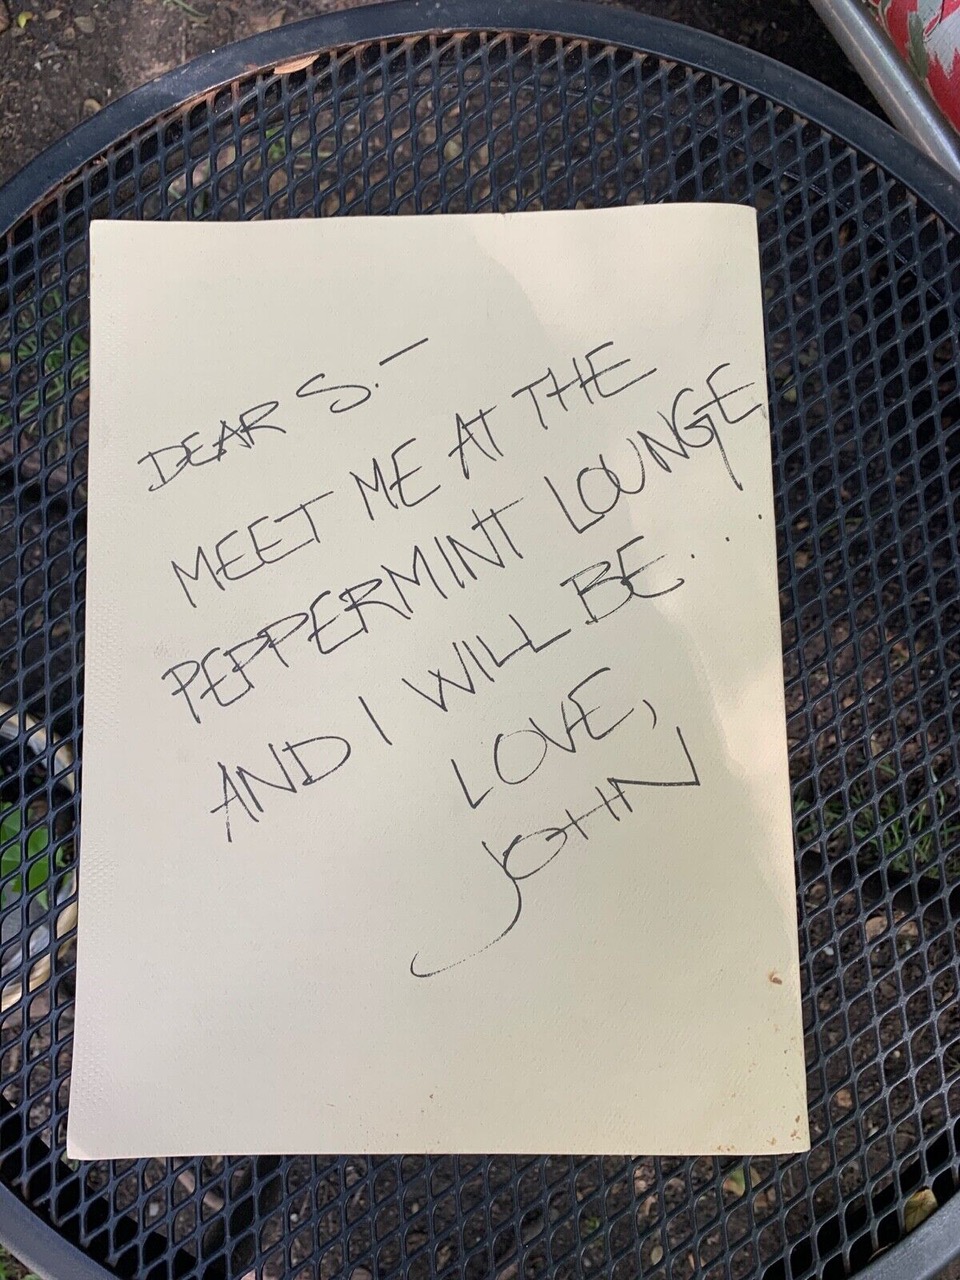 DEAR S.—
MEET ME AT THE
PEPPERMINT LOUNGE
AND I WILL BE...
LOVE,
JOHN